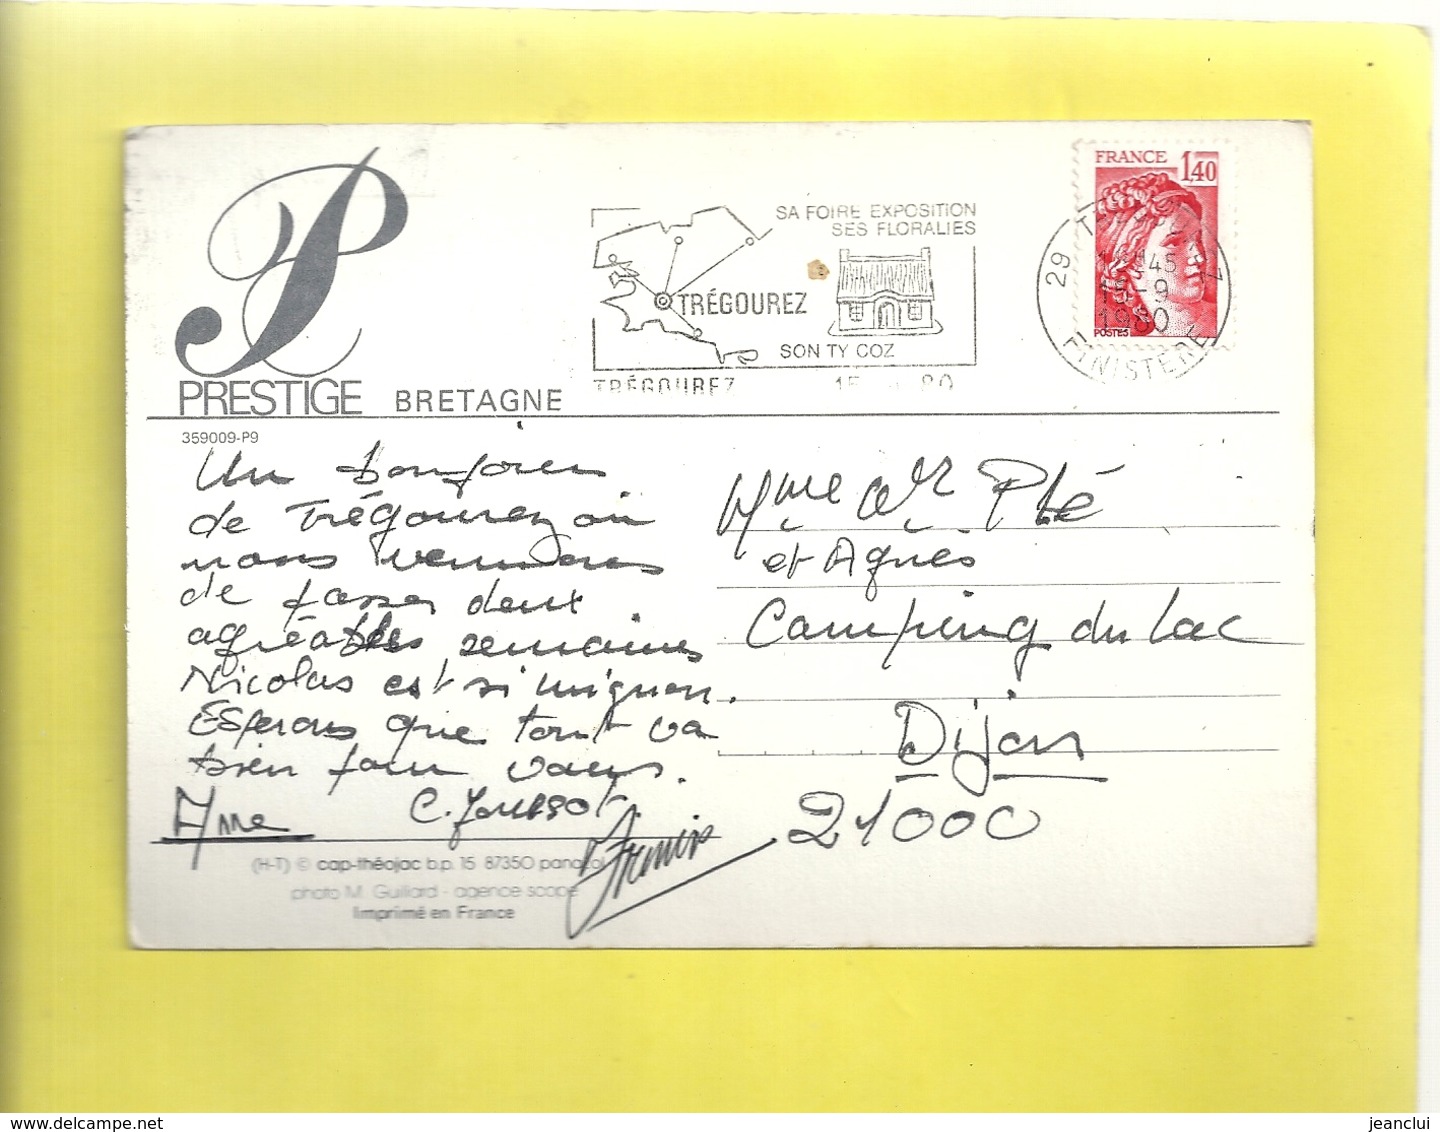 PRESTIGE BRETAGNE
359009-P9
SA FOIRE EXPOSITION
SES FLORALIES
TRÉGOUREZ
SON TY COZ
TRÉGOUREZ
FRANCE 1,40
POSTES
29
45
15-9
1980
FINISTERE
Un bonjour
de Trégourez où
nous venons
de passer deux
agréables semaines
Nicolas est si mignon.
Espérons que tout va
bien pour vous.
Mme C. Jousset
Mme et Mr Plé
et Agnès
Camping du Lac
Dijon
21000
(H-T) © cap-théojac b.p. 15 87350 panazol
photo M. Guillard - agence scope
Imprimé en France
delcampe.net
jeanclui